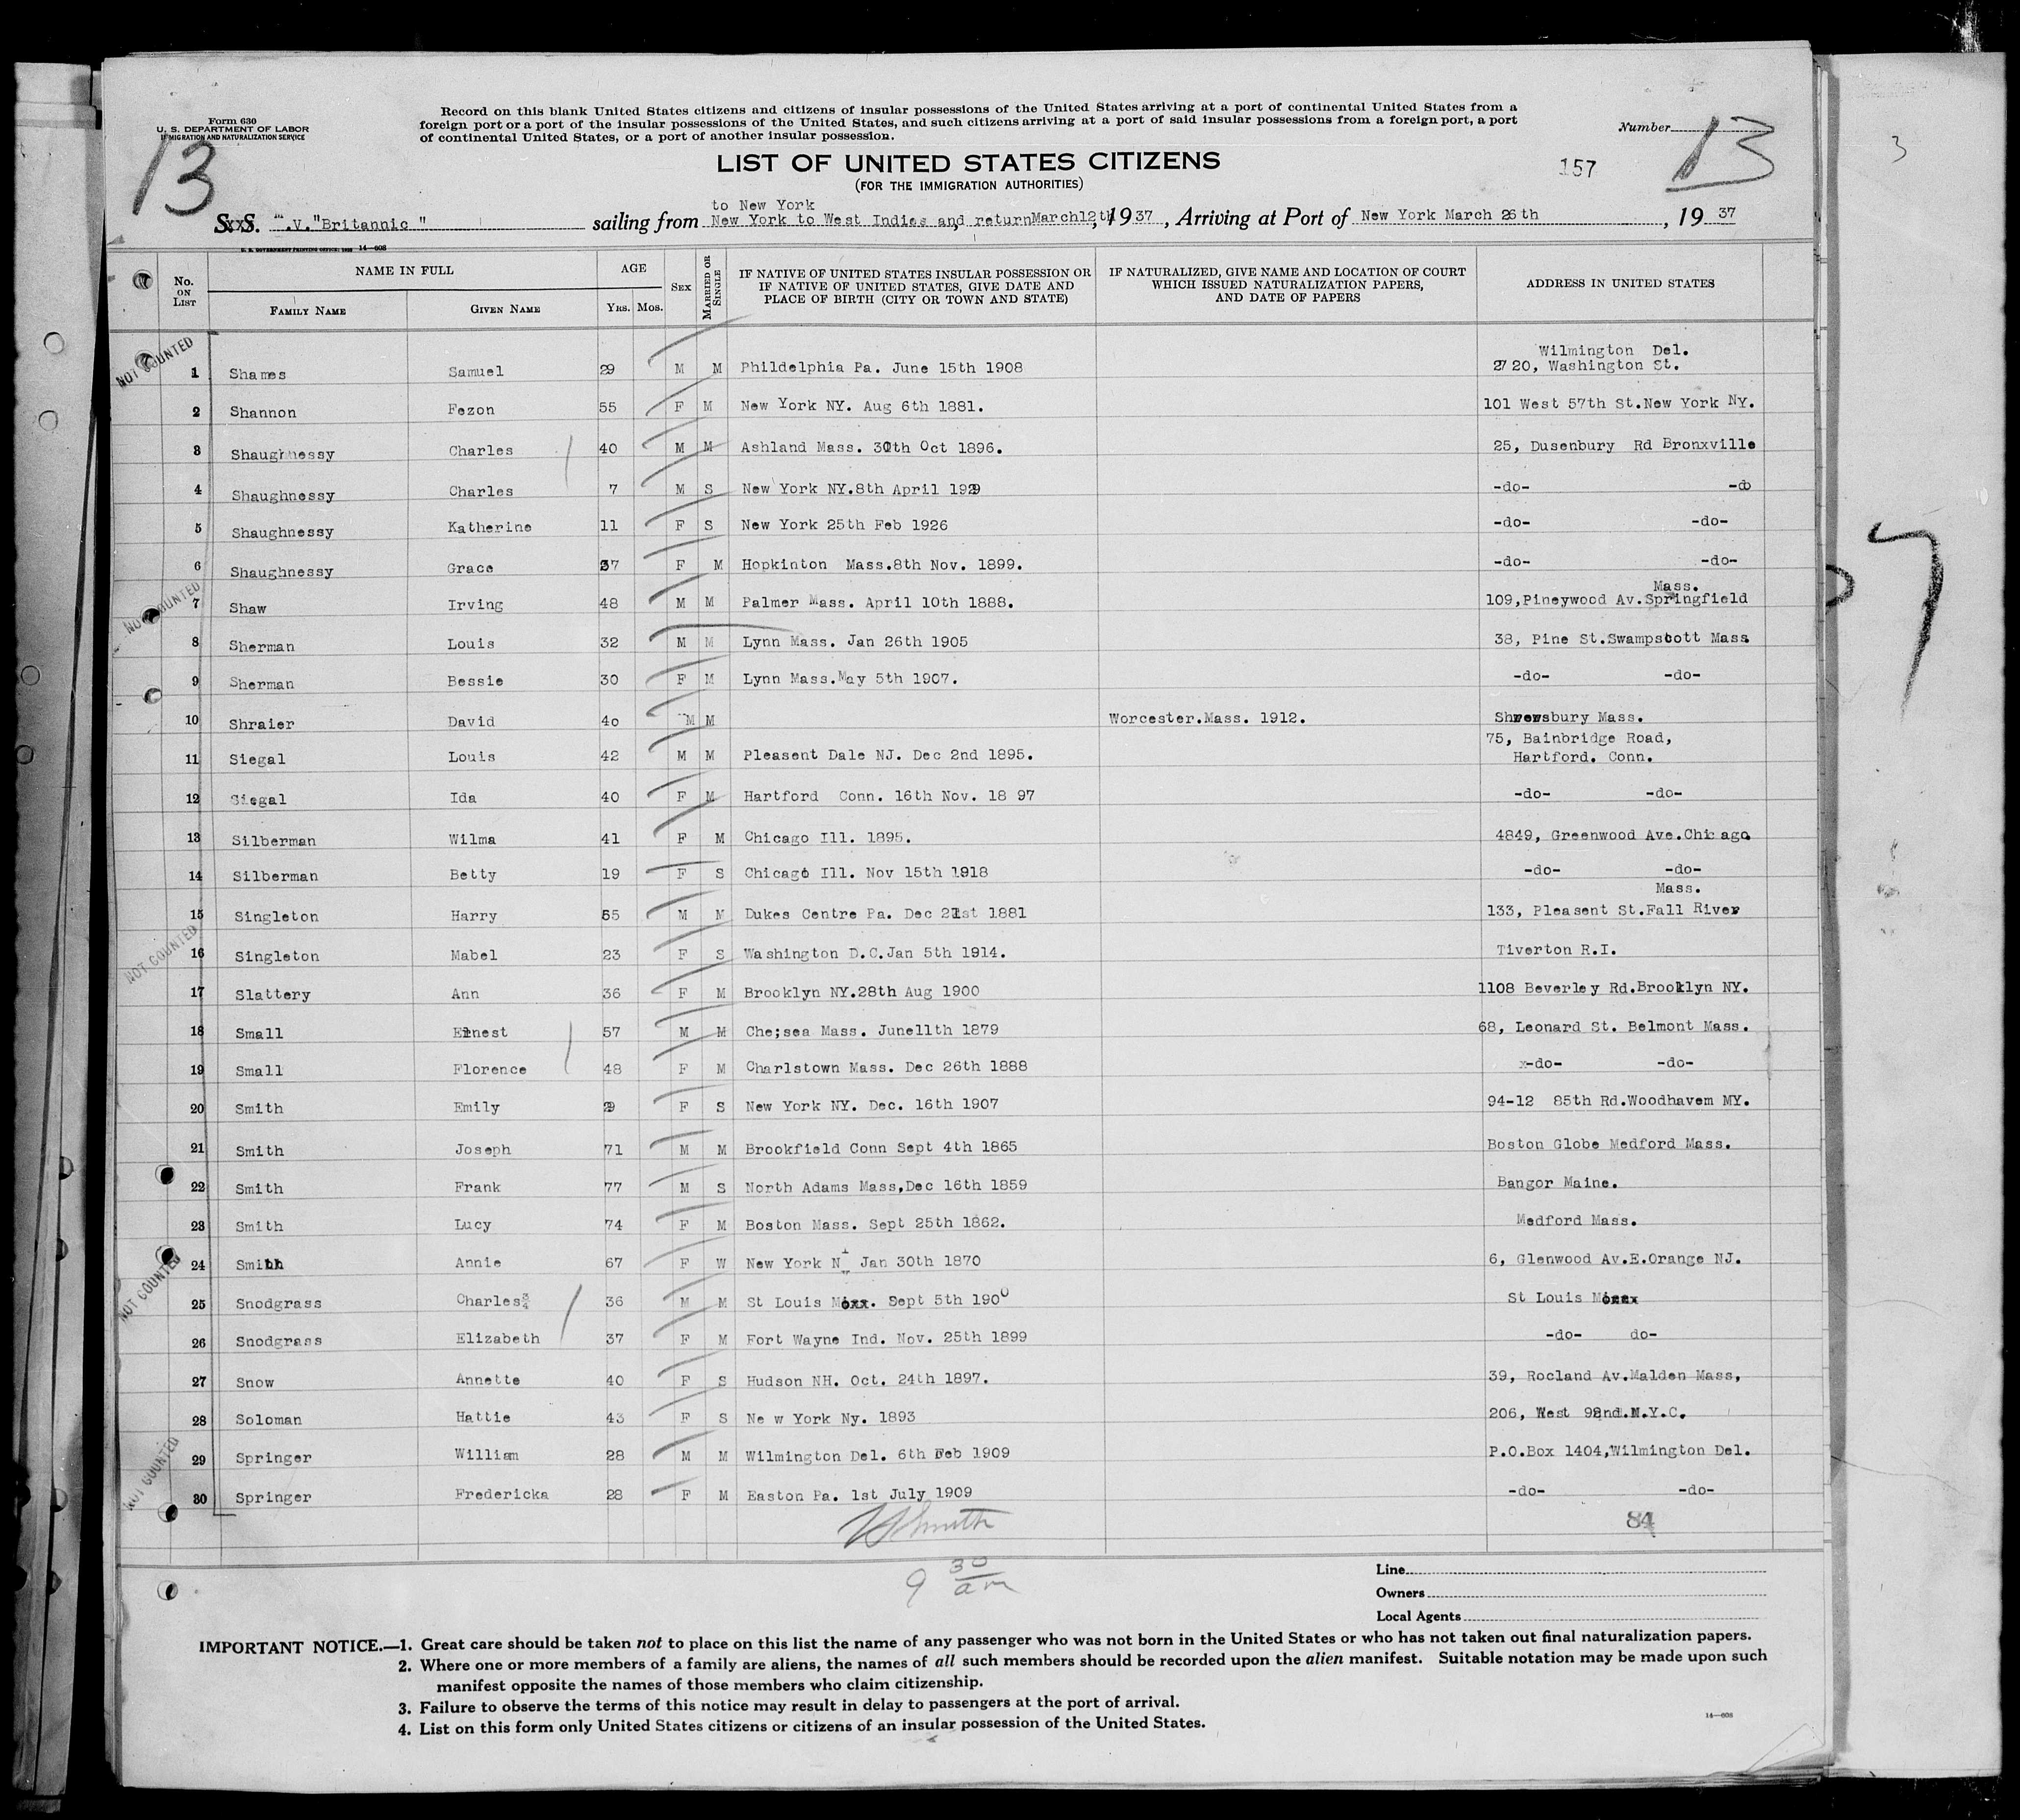 Form 630
U. S. DEPARTMENT OF LABOR
IMMIGRATION AND NATURALIZATION SERVICE
Record on this blank United States citizens and citizens of insular possessions of the United States arriving at a port of continental United States from a
foreign port or a port of the insular possessions of the United States, and such citizens arriving at a port of said insular possessions from a foreign port, a port
of continental United States, or a port of another insular possession.
Number 13
13
157
3
LIST OF UNITED STATES CITIZENS
(FOR THE IMMIGRATION AUTHORITIES)
to New York
S.S. M.V."Britannic " sailing from New York to West Indies and return March12th, 1937, Arriving at Port of New York March 26th, 19 37
U. S. GOVERNMENT PRINTING OFFICE: 14—608
No. ON LIST NAME IN FULL FAMILY NAME GIVEN NAME AGE YRS. MOS. SEX MARRIED OR SINGLE IF NATIVE OF UNITED STATES INSULAR POSSESSION OR IF NATIVE OF UNITED STATES, GIVE DATE AND PLACE OF BIRTH (CITY OR TOWN AND STATE) IF NATURALIZED, GIVE NAME AND LOCATION OF COURT WHICH ISSUED NATURALIZATION PAPERS, AND DATE OF PAPERS ADDRESS IN UNITED STATES
NOT COUNTED
Wilmington Del.
1 Shames Samuel 29 M M Phildelphia Pa. June 15th 1908 2720, Washington St.
2 Shannon Fezon 55 F M New York NY. Aug 6th 1881. 101 West 57th St.New York NY.
3 Shaughnessy Charles 40 M M Ashland Mass. 30th Oct 1896. 25, Dusenbury Rd Bronxville
4 Shaughnessy Charles 7 M S New York NY.8th April 1929 -do- -do
5 Shaughnessy Katherine 11 F S New York 25th Feb 1926 -do- -do-
6 Shaughnessy Grace 37 F M Hopkinton Mass.8th Nov. 1899. -do- -do-
NOT COUNTED
Mass.
7 Shaw Irving 48 M M Palmer Mass. April 10th 1888. 109,Pineywood Av.Springfield
8 Sherman Louis 32 M M Lynn Mass. Jan 26th 1905 38, Pine St.Swampscott Mass
9 Sherman Bessie 30 F M Lynn Mass.May 5th 1907. -do- -do-
10 Shraier David 4o M M Worcester.Mass. 1912. Shrewsbury Mass.
75, Bainbridge Road,
11 Siegal Louis 42 M M Pleasent Dale NJ. Dec 2nd 1895. Hartford. Conn.
12 Siegal Ida 40 F M Hartford Conn. 16th Nov. 18 97 -do- -do-
13 Silberman Wilma 41 F M Chicago Ill. 1895. 4849, Greenwood Ave.Chicago
14 Silberman Betty 19 F S Chicago Ill. Nov 15th 1918 -do- -do-
Mass.
15 Singleton Harry 55 M M Dukes Centre Pa. Dec 21st 1881 133, Pleasent St.Fall River
NOT COUNTED
16 Singleton Mabel 23 F S Washington D.C.Jan 5th 1914. Tiverton R.I.
17 Slattery Ann 36 F M Brooklyn NY.28th Aug 1900 1108 Beverley Rd.Brooklyn NY.
18 Small Ernest 57 M M Che;sea Mass. June11th 1879 68, Leonard St. Belmont Mass.
19 Small Florence 48 F M Charlstown Mass. Dec 26th 1888 x-do- -do-
20 Smith Emily 29 F S New York NY. Dec. 16th 1907 94-12 85th Rd.Woodhavem MY.
21 Smith Joseph 71 M M Brookfield Conn Sept 4th 1865 Boston Globe Medford Mass.
22 Smith Frank 77 M S North Adams Mass,Dec 16th 1859 Bangor Maine.
23 Smith Lucy 74 F M Boston Mass. Sept 25th 1862. Medford Mass.
24 Smith Annie 67 F W New York N Jan 30th 1870 6, Glenwood Av.E.Orange NJ.
NOT COUNTED
25 Snodgrass Charles 36 M M St Louis Sept 5th 1900 St Louis
26 Snodgrass Elizabeth 37 F M Fort Wayne Ind. Nov. 25th 1899 -do- do-
27 Snow Annette 40 F S Hudson NH. Oct. 24th 1897. 39, Rocland Av.Malden Mass,
28 Soloman Hattie 43 F S Ne w York Ny. 1893 206, West 92nd.N.Y.C.
NOT COUNTED
29 Springer William 28 M M Wilmington Del. 6th Feb 1909 P.O.Box 1404,Wilmington Del.
30 Springer Fredericka 28 F M Easton Pa. 1st July 1909 -do- -do-
Smith
84
9 30 am
Line
Owners
Local Agents
IMPORTANT NOTICE.—1. Great care should be taken not to place on this list the name of any passenger who was not born in the United States or who has not taken out final naturalization papers.
2. Where one or more members of a family are aliens, the names of all such members should be recorded upon the alien manifest. Suitable notation may be made upon such
manifest opposite the names of those members who claim citizenship.
3. Failure to observe the terms of this notice may result in delay to passengers at the port of arrival.
4. List on this form only United States citizens or citizens of an insular possession of the United States.
14—608